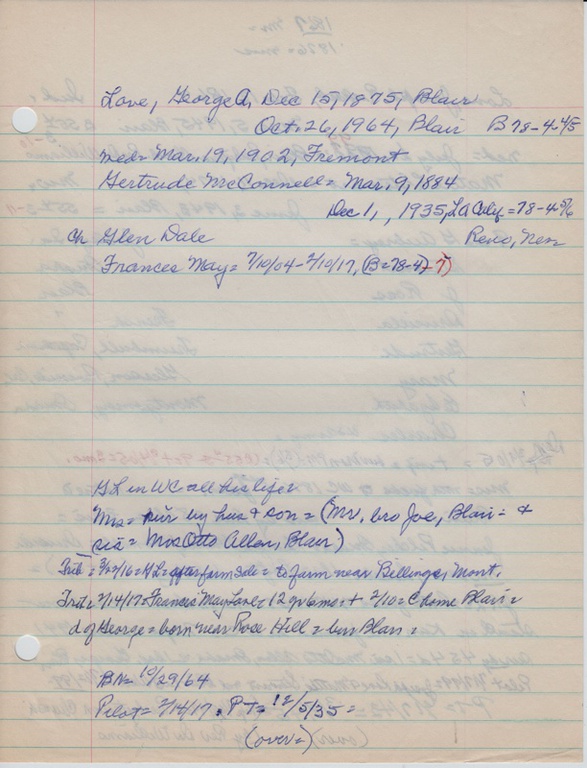 Love, George A, Dec 15, 1875, Blair
Oct. 26, 1964, Blair B 78-4-4/5
med= Mar. 19, 1902, Fremont
Gertrude McConnell = Mar. 9, 1884
Dec 1, , 1935, LA Calif = 78-4-5/6
Ch Glen Dale Reno, Nev
Frances May = 7/10/04 - 2/10/17, (B=78-4)-7)
GL in WC all his life
Mrs = sur by hus & son = (Mr, bro Joe, Blair = &
sis = Mrs Otto Allen, Blair)
Trib = 3/22/16 = GL after farm sale = to farm near Billings, Mont.
Trib = 2/14/17 = Frances May Love = 12 yrs 6 mo = + 2/10 = C home Blair =
d of George = born near Rose Hill = bur Blair =
BN = 10/29/64
Pilot = 2/14/17. P T = 12/5/35 =
(over =)